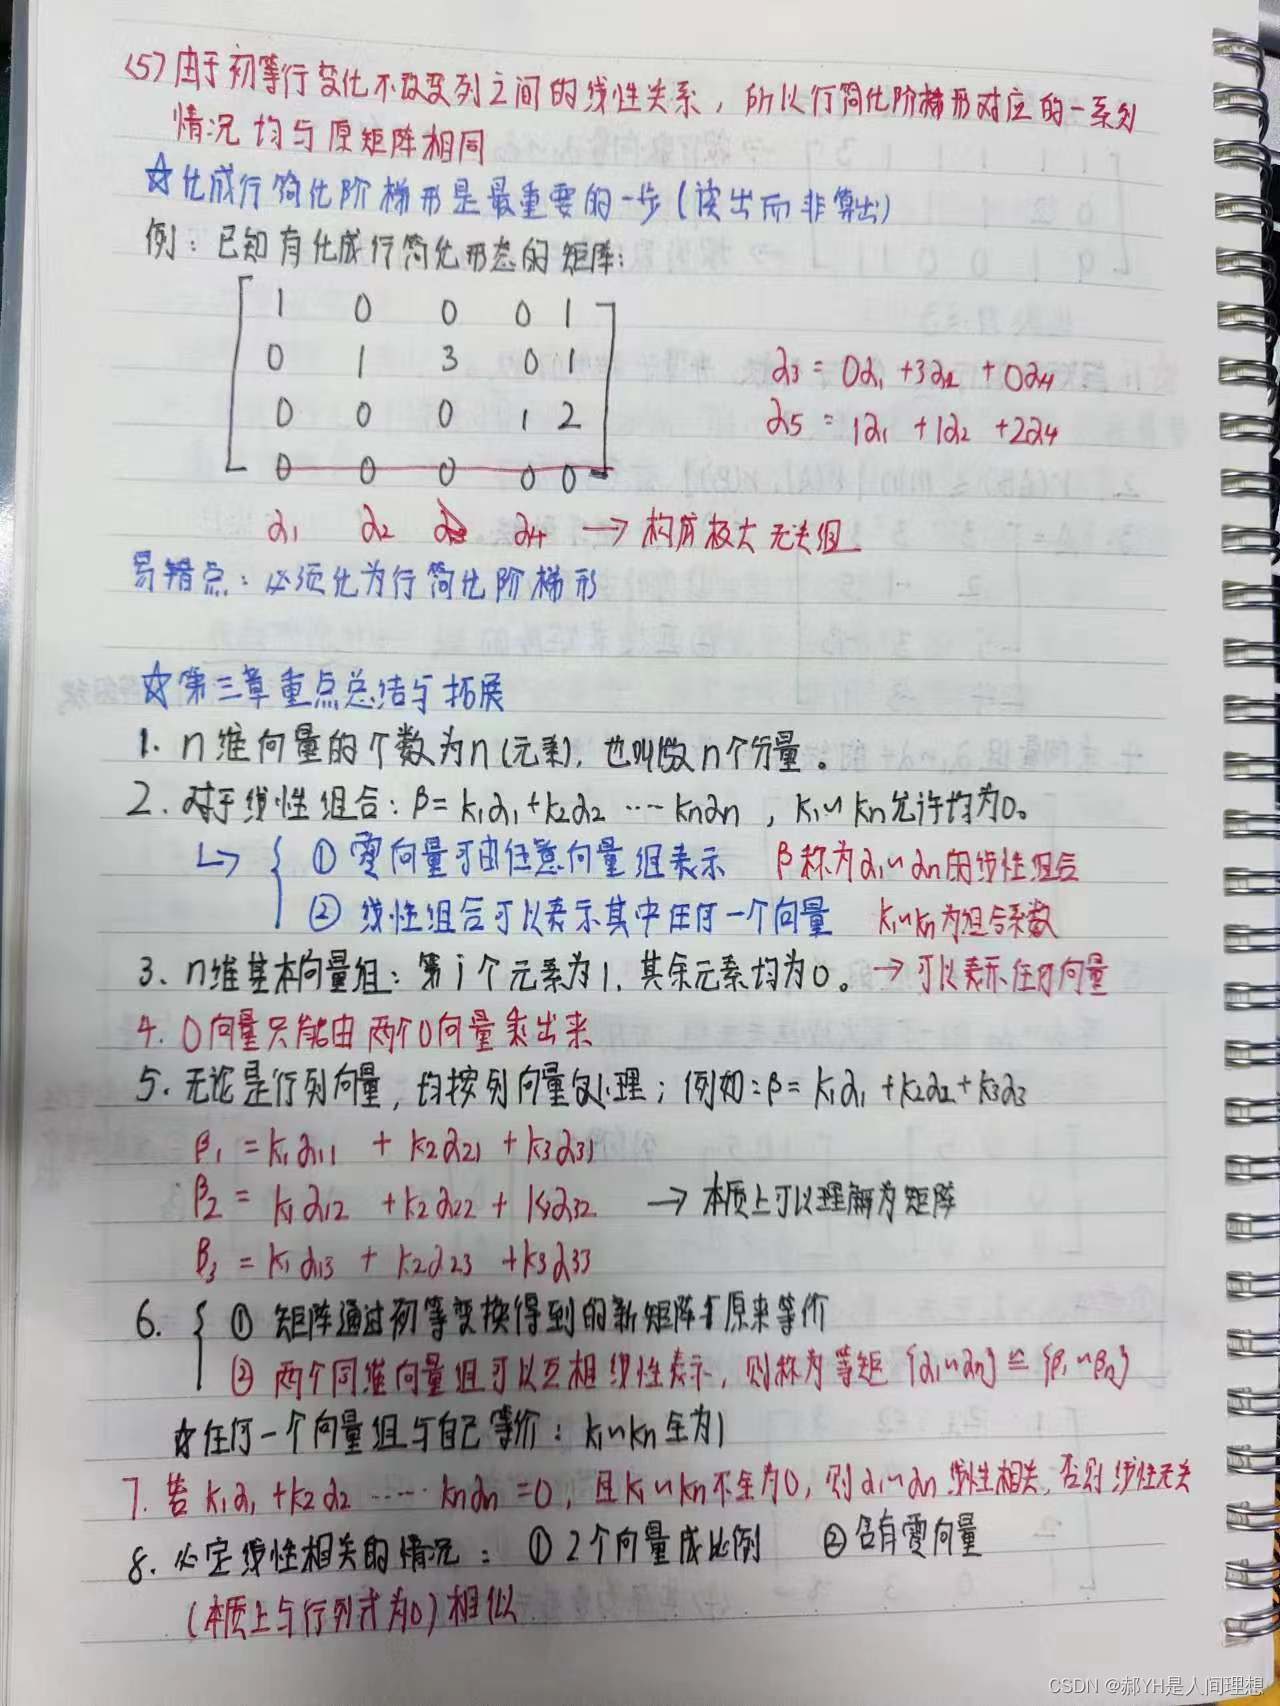 (5) 由于初等行变化不改变列之间的线性关系，所以行简化阶梯形对应的一系列
情况均与原矩阵相同
☆化成行简化阶梯形是最重要的一步(读出而非算出)
例：已知有化成行简化形态的矩阵：
1 0 0 0 1
0 1 3 0 1
α3 = 0α1 +3α2 +0α4
0 0 0 1 2
α5 = 1α1 +1α2 +2α4
0 0 0 0 0
α1 α2 α4 → 构成极大无关组
易错点：必须化为行简化阶梯形
☆第三章重点总结与拓展
1. n维向量的个数为n(元素)，也叫做n个分量。
2. 对于线性组合：β= k1α1+k2α2 ⋯ knαn，k1~kn允许均为0。
↳ ① 零向量可由任意向量组表示 β称为α1~αn的线性组合
② 线性组合可以表示其中任何一个向量 k1~kn为组合系数
3. n维基本向量组：第i个元素为1，其余元素均为0。→可以表示任何向量
4. 0向量只能由两个0向量乘出来
5. 无论是行列向量，均按列向量处理；例如：β= k1α1+k2α2+k3α3
β1 = k1α11 + k2α21 + k3α31
β2 = k1α12 + k2α22 + k3α32 → 本质上可以理解为矩阵
β3 = k1α13 + k2α23 + k3α33
6. ① 矩阵通过初等变换得到的新矩阵与原来等价
② 两个同维向量组可以互相线性表示，则称为等矩 {α1~αn} ≌ {β1~βn}
☆任何一个向量组与自己等价：k1~kn全为1
7. 若 k1α1+k2α2 ⋯⋯ knαn =0，且k1~kn不全为0，则α1~αn线性相关，否则线性无关
8. 必定线性相关的情况： ① 2个向量成比例 ② 含有零向量
(本质上与行列式为0)相似
CSDN @郝YH是人间理想